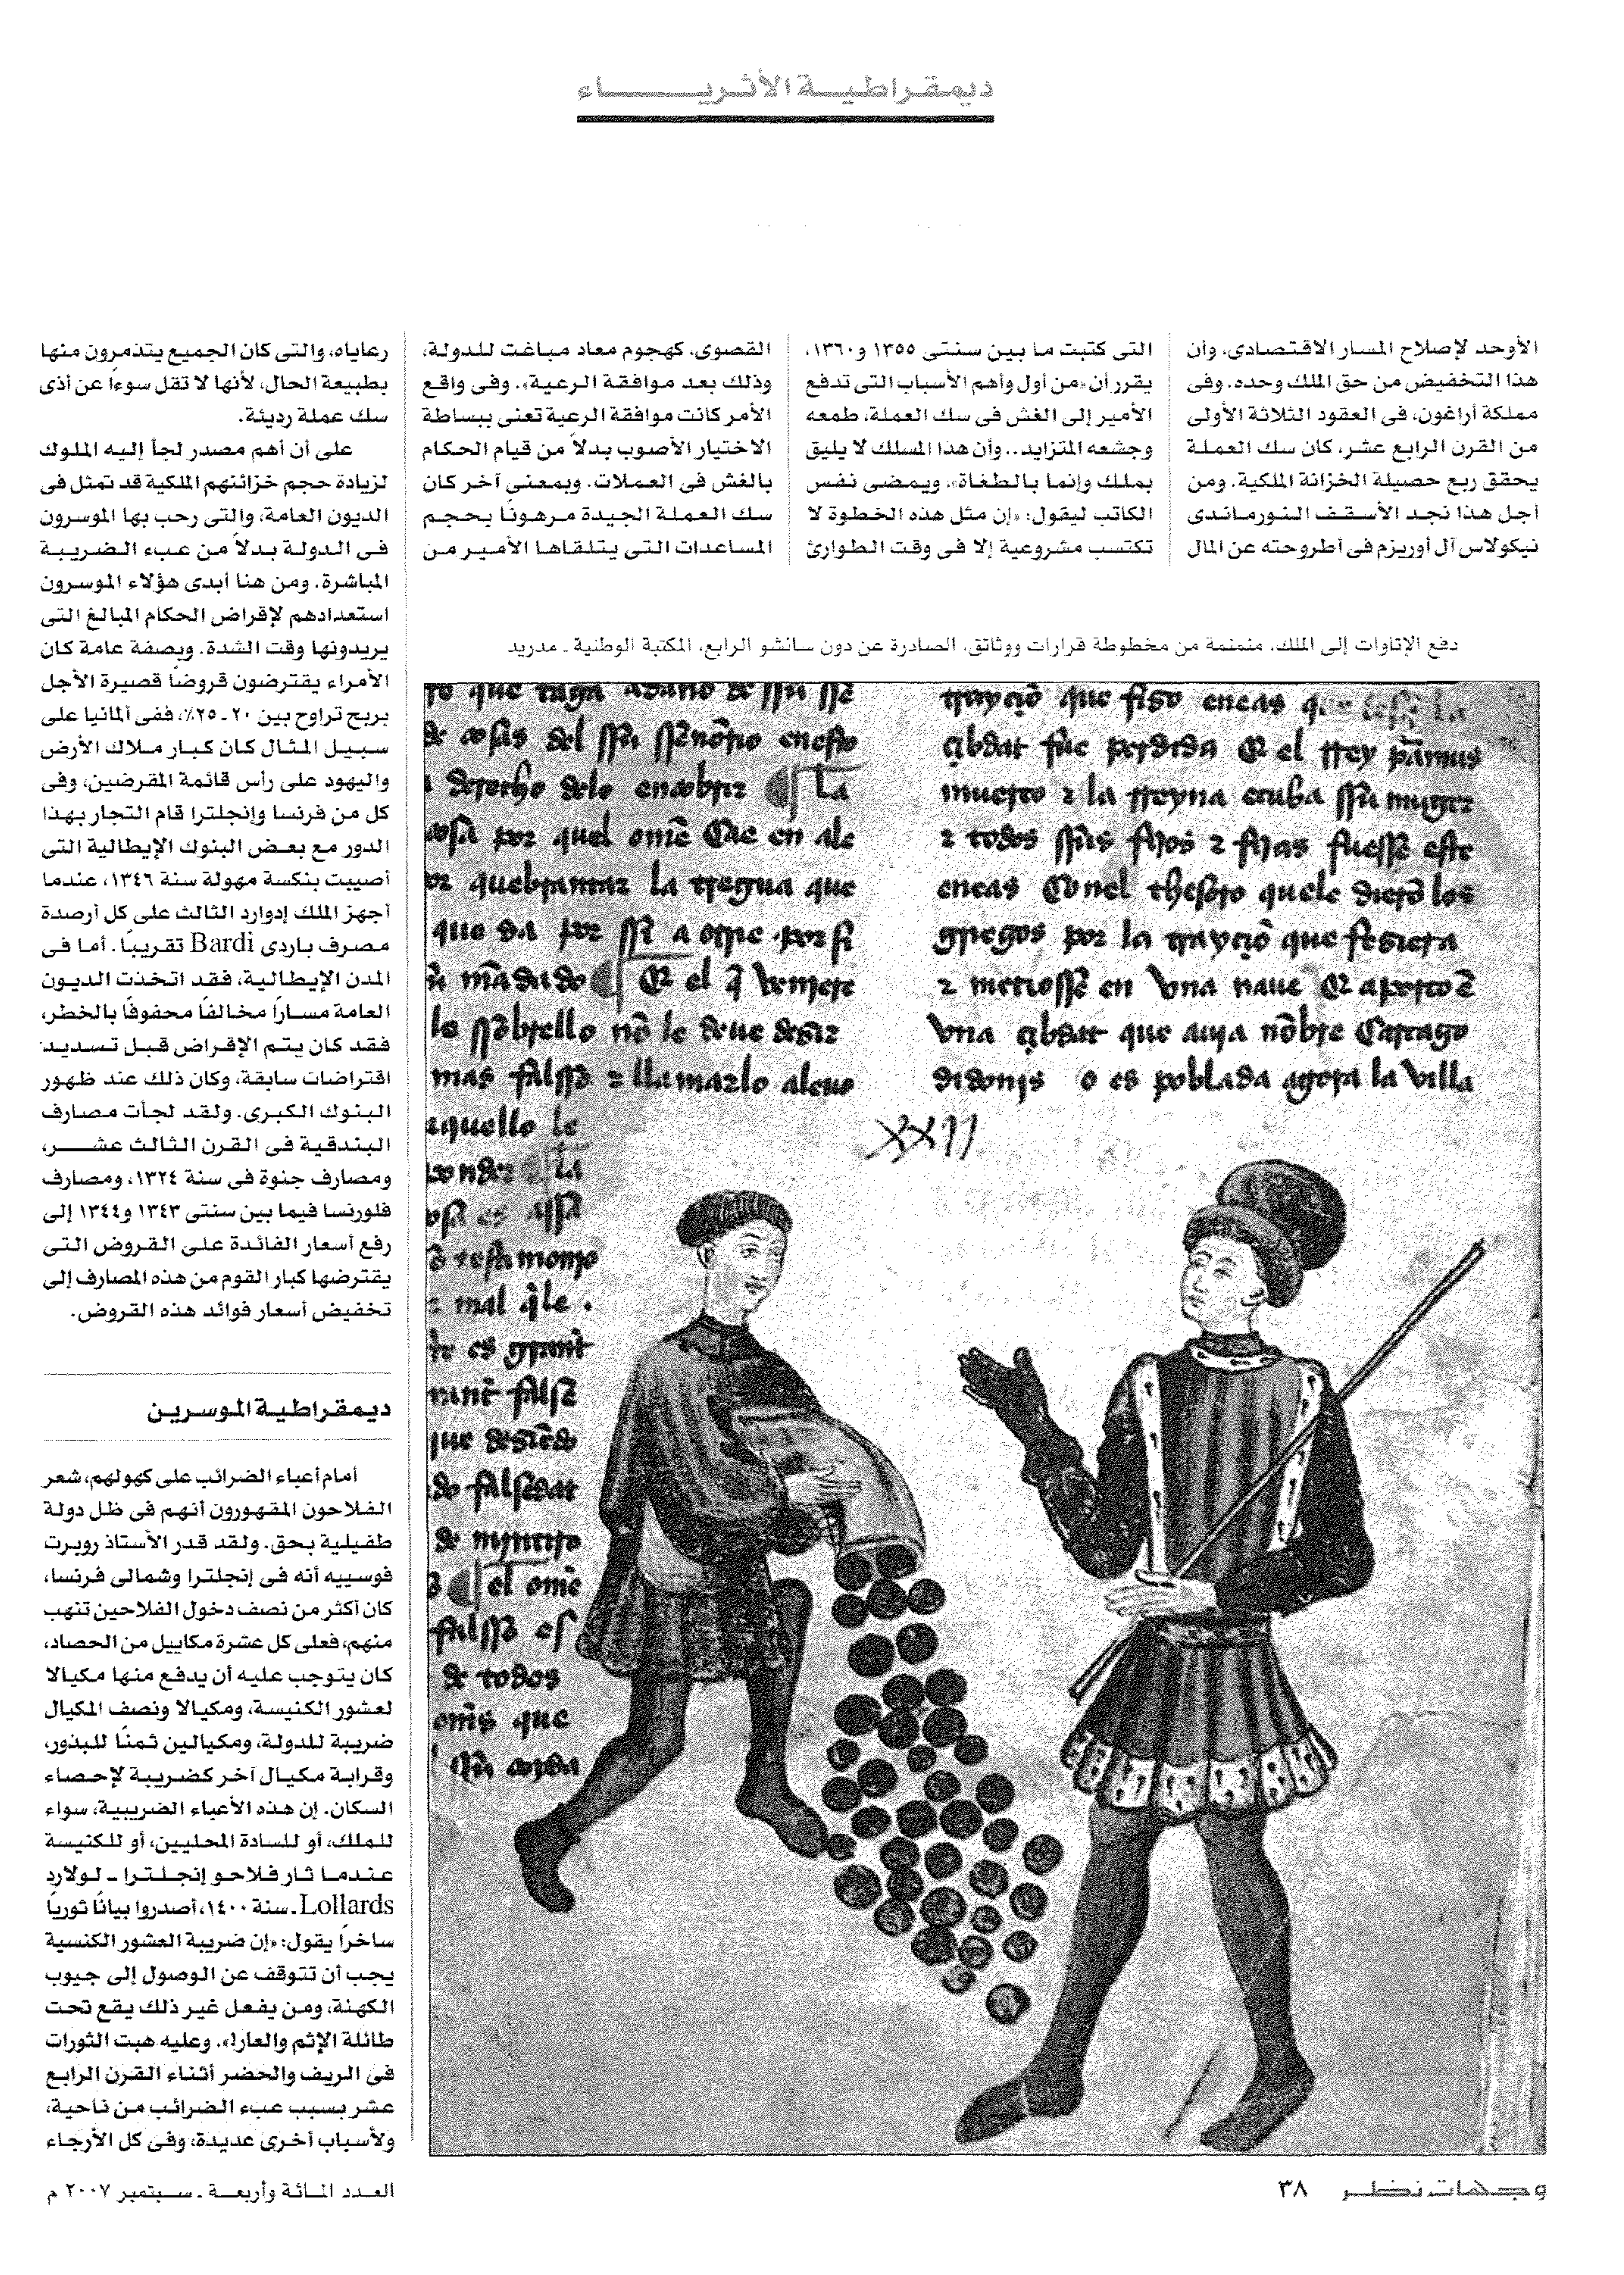 ديمقراطية الأثرياء
الأوحد لإصلاح المسار الاقتصادى، وأن
هذا التخفيض من حق الملك وحده. وفى
مملكة أراغون، فى العقود الثلاثة الأولى
من القرن الرابع عشر، كان سك العملة
يحقق ربع حصيلة الخزانة الملكية. ومن
أجل هذا نجد الأسقف النورماندى
نيكولاس آل أوريزم فى أطروحته عن المال
التى كتبت ما بين سنتى ١٣٥٥ و١٣٦٠،
يقرر أن «من أول وأهم الأسباب التى تدفع
الأمير إلى الغش فى سك العملة، طمعه
وجشعه المتزايد.. وأن هذا المسلك لا يليق
بملك وإنما بالطغاة»، ويمضى نفس
الكاتب ليقول: «إن مثل هذه الخطوة لا
تكتسب مشروعية إلا فى وقت الطوارئ
القصوى، كهجوم معاد مباغت للدولة،
وذلك بعد موافقة الرعية». وفى واقع
الأمر كانت موافقة الرعية تعنى ببساطة
الاختيار الأصوب بدلاً من قيام الحكام
بالغش فى العملات. وبمعنى آخر كان
سك العملة الجيدة مرهونًا بحجم
المساعدات التى يتلقاها الأمير من
رعاياه، والتى كان الجميع يتذمرون منها
بطبيعة الحال، لأنها لا تقل سوءًا عن أذى
سك عملة رديئة.
على أن أهم مصدر لجأ إليه الملوك
لزيادة حجم خزائنهم الملكية قد تمثل فى
الديون العامة، والتى رحب بها الموسرون
فى الدولة بدلاً من عبء الضريبة
المباشرة. ومن هنا أبدى هؤلاء الموسرون
استعدادهم لإقراض الحكام المبالغ التى
يريدونها وقت الشدة. وبصفة عامة كان
الأمراء يقترضون قروضًا قصيرة الأجل
بربح تراوح بين ٢٠ ـ ٢٥٪، ففى ألمانيا على
سبيل المثال كان كبار ملاك الأرض
واليهود على رأس قائمة المقرضين، وفى
كل من فرنسا وإنجلترا قام التجار بهذا
الدور مع بعض البنوك الإيطالية التى
أصيبت بنكسة مهولة سنة ١٣٤٦، عندما
أجهز الملك إدوارد الثالث على كل أرصدة
مصرف باردى Bardi تقريبًا. أما فى
المدن الإيطالية، فقد اتخذت الديون
العامة مسارًا مخالفًا محفوفًا بالخطر،
فقد كان يتم الإقراض قبل تسديد
اقتراضات سابقة، وكان ذلك عند ظهور
البنوك الكبرى. ولقد لجأت مصارف
البندقية فى القرن الثالث عشر،
ومصارف جنوة فى سنة ١٣٢٤، ومصارف
فلورنسا فيما بين سنتى ١٣٤٣ و١٣٤٤ إلى
رفع أسعار الفائدة على القروض التى
يقترضها كبار القوم من هذه المصارف إلى
تخفيض أسعار فوائد هذه القروض.
ديمقراطية الموسرين
أمام أعباء الضرائب على كهولهم، شعر
الفلاحون المقهورون أنهم فى ظل دولة
طفيلية بحق. ولقد قدر الأستاذ روبرت
فوسييه أنه فى إنجلترا وشمالى فرنسا،
كان أكثر من نصف دخول الفلاحين تنهب
منهم، فعلى كل عشرة مكاييل من الحصاد،
كان يتوجب عليه أن يدفع منها مكيالا
لعشور الكنيسة، ومكيالا ونصف المكيال
ضريبة للدولة، ومكيالين ثمنًا للبذور،
وقرابة مكيال آخر كضريبة لإحصاء
السكان. إن هذه الأعباء الضريبية، سواء
للملك، أو للسادة المحليين، أو للكنيسة
عندما ثار فلاحو إنجلترا ـ لولارد
Lollards ـ سنة ١٤٠٠، أصدروا بيانًا ثوريًا
ساخرًا يقول: «إن ضريبة العشور الكنسية
يجب أن تتوقف عن الوصول إلى جيوب
الكهنة، ومن يفعل غير ذلك يقع تحت
طائلة الإثم والعار!». وعليه هبت الثورات
فى الريف والحضر أثناء القرن الرابع
عشر بسبب عبء الضرائب من ناحية،
ولأسباب أخرى عديدة، وفى كل الأرجاء
دفع الإتاوات إلى الملك، منمنمة من مخطوطة قرارات ووثائق، الصادرة عن دون سانشو الرابع، المكتبة الوطنية ـ مدريد
de cosas del
la
por quel ome Cae en ale
quebrantar la tregua que
que da por
le
mas falsso z llamarlo aleuo
aquello le
mal
el ome
de todos
que
que fizo eneas
cibdat fue perdida Et el rrey
muerto z la rreyna
z todos fijos z fijas fuesse este
eneas Con el thesoro quele dieron los
griegos por la que
z metiosse en vna naue Et
vna cibdat que auja nonbre Cartago
o es poblada agora la villa
XXII
وجهات نظر ٣٨
العدد المائة وأربعة ـ سبتمبر ٢٠٠٧ م